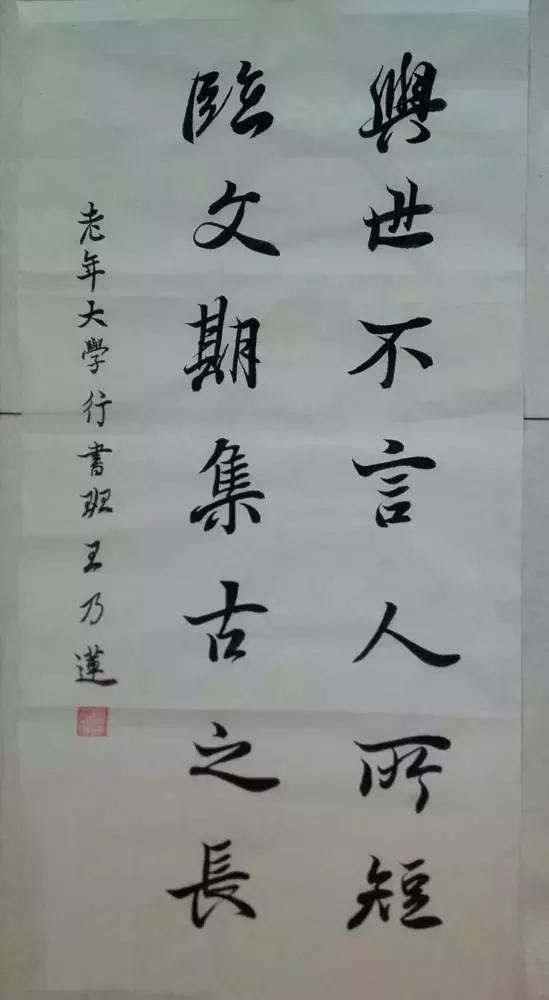 與世不言人所短
臨文期集古之長
老年大學行書班王乃蓮